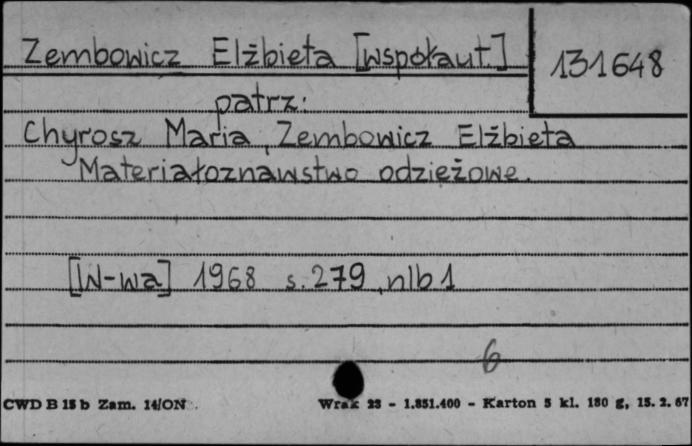 Zembowicz Elżbieta [współaut.] 131648
patrz:
Chyrosz Maria, Zembowicz Elżbieta
Materiałoznawstwo odzieżowe.
[W-wa] 1968 s. 279, nlb 1
6
CWD B 15 b Zam. 14/ON Wrak 23 - 1.851.400 - Karton 5 kl. 180 g, 15. 2. 67